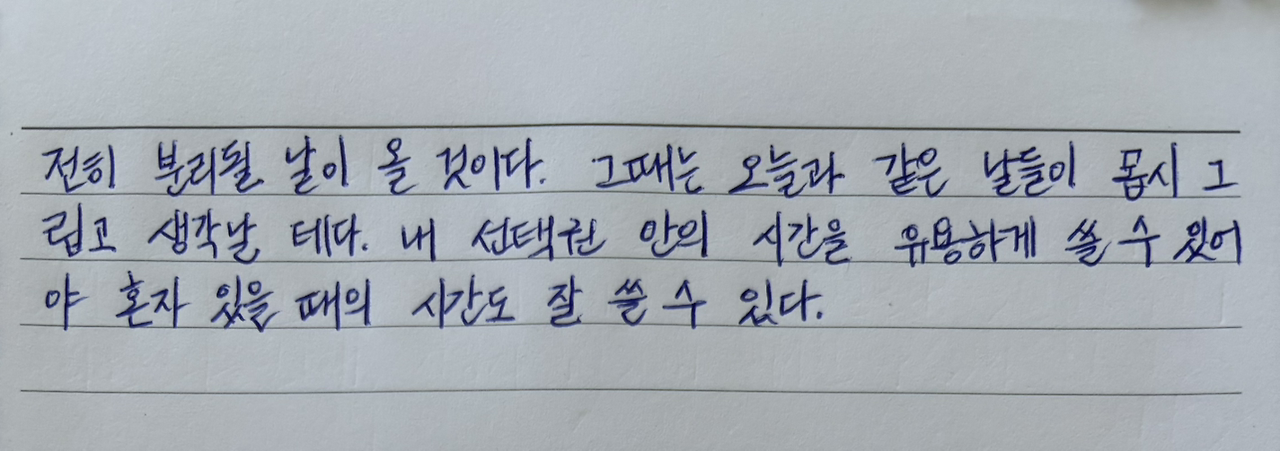 전히 분리될 날이 올 것이다. 그때는 오늘과 같은 날들이 몹시 그
립고 생각날 테다. 내 선택권 안의 시간을 유용하게 쓸 수 있어
야 혼자 있을 때의 시간도 잘 쓸 수 있다.